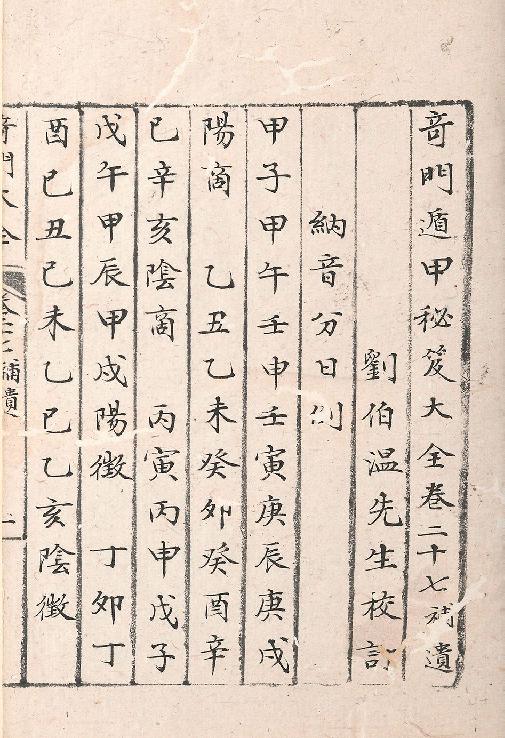 竒門遁甲秘笈大全卷二十七補遺
劉伯温先生校訂
納音分日例
甲子甲午壬申壬寅庚辰庚戌
陽商 乙丑乙未癸卯癸酉辛
巳辛亥陰商 丙寅丙申戊子
戊午甲辰甲戌陽徵 丁卯丁
酉巳丑己未乙巳乙亥陰徵
竒門大全 卷二七 補遺 一